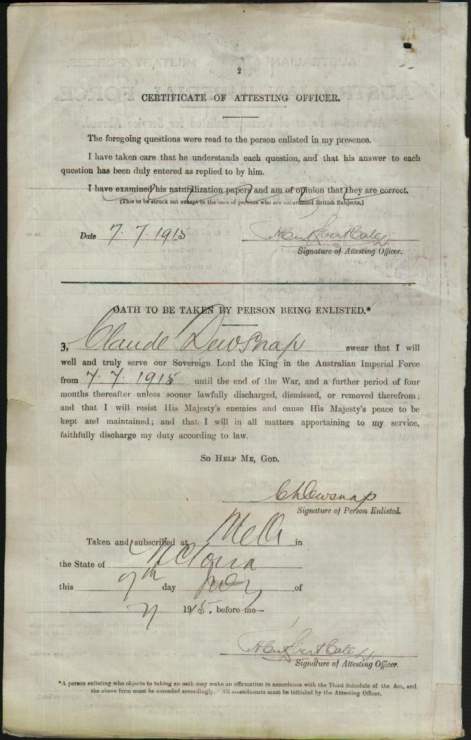 2
CERTIFICATE OF ATTESTING OFFICER.
The foregoing questions were read to the person enlisted in my presence.
I have taken care that he understands each question, and that his answer to each
question has been duly entered as replied to by him.
I have examined his naturalization papers and am of opinion that they are correct.
(This to be struck out except in the case of persons who are naturalized British Subjects.)
Date 7.7.1915
Signature of Attesting Officer.
OATH TO BE TAKEN BY PERSON BEING ENLISTED.*
3, Claude Dewsnap swear that I will
well and truly serve our Sovereign Lord the King in the Australian Imperial Force
from 7.7.1915 until the end of the War, and a further period of four
months thereafter unless sooner lawfully discharged, dismissed, or removed therefrom;
and that I will resist His Majesty's enemies and cause His Majesty's peace to be
kept and maintained; and that I will in all matters appertaining to my service,
faithfully discharge my duty according to law.
SO HELP ME, GOD.
C Dewsnap
Signature of Person Enlisted.
Taken and subscribed at Melb in
the State of Victoria
this 7th day of
1915, before me—
Signature of Attesting Officer.
*A person enlisting who objects to taking an oath may make an affirmation in accordance with the Third Schedule of the Act, and
the above form must be amended accordingly. All amendments must be initialed by the Attesting Officer.